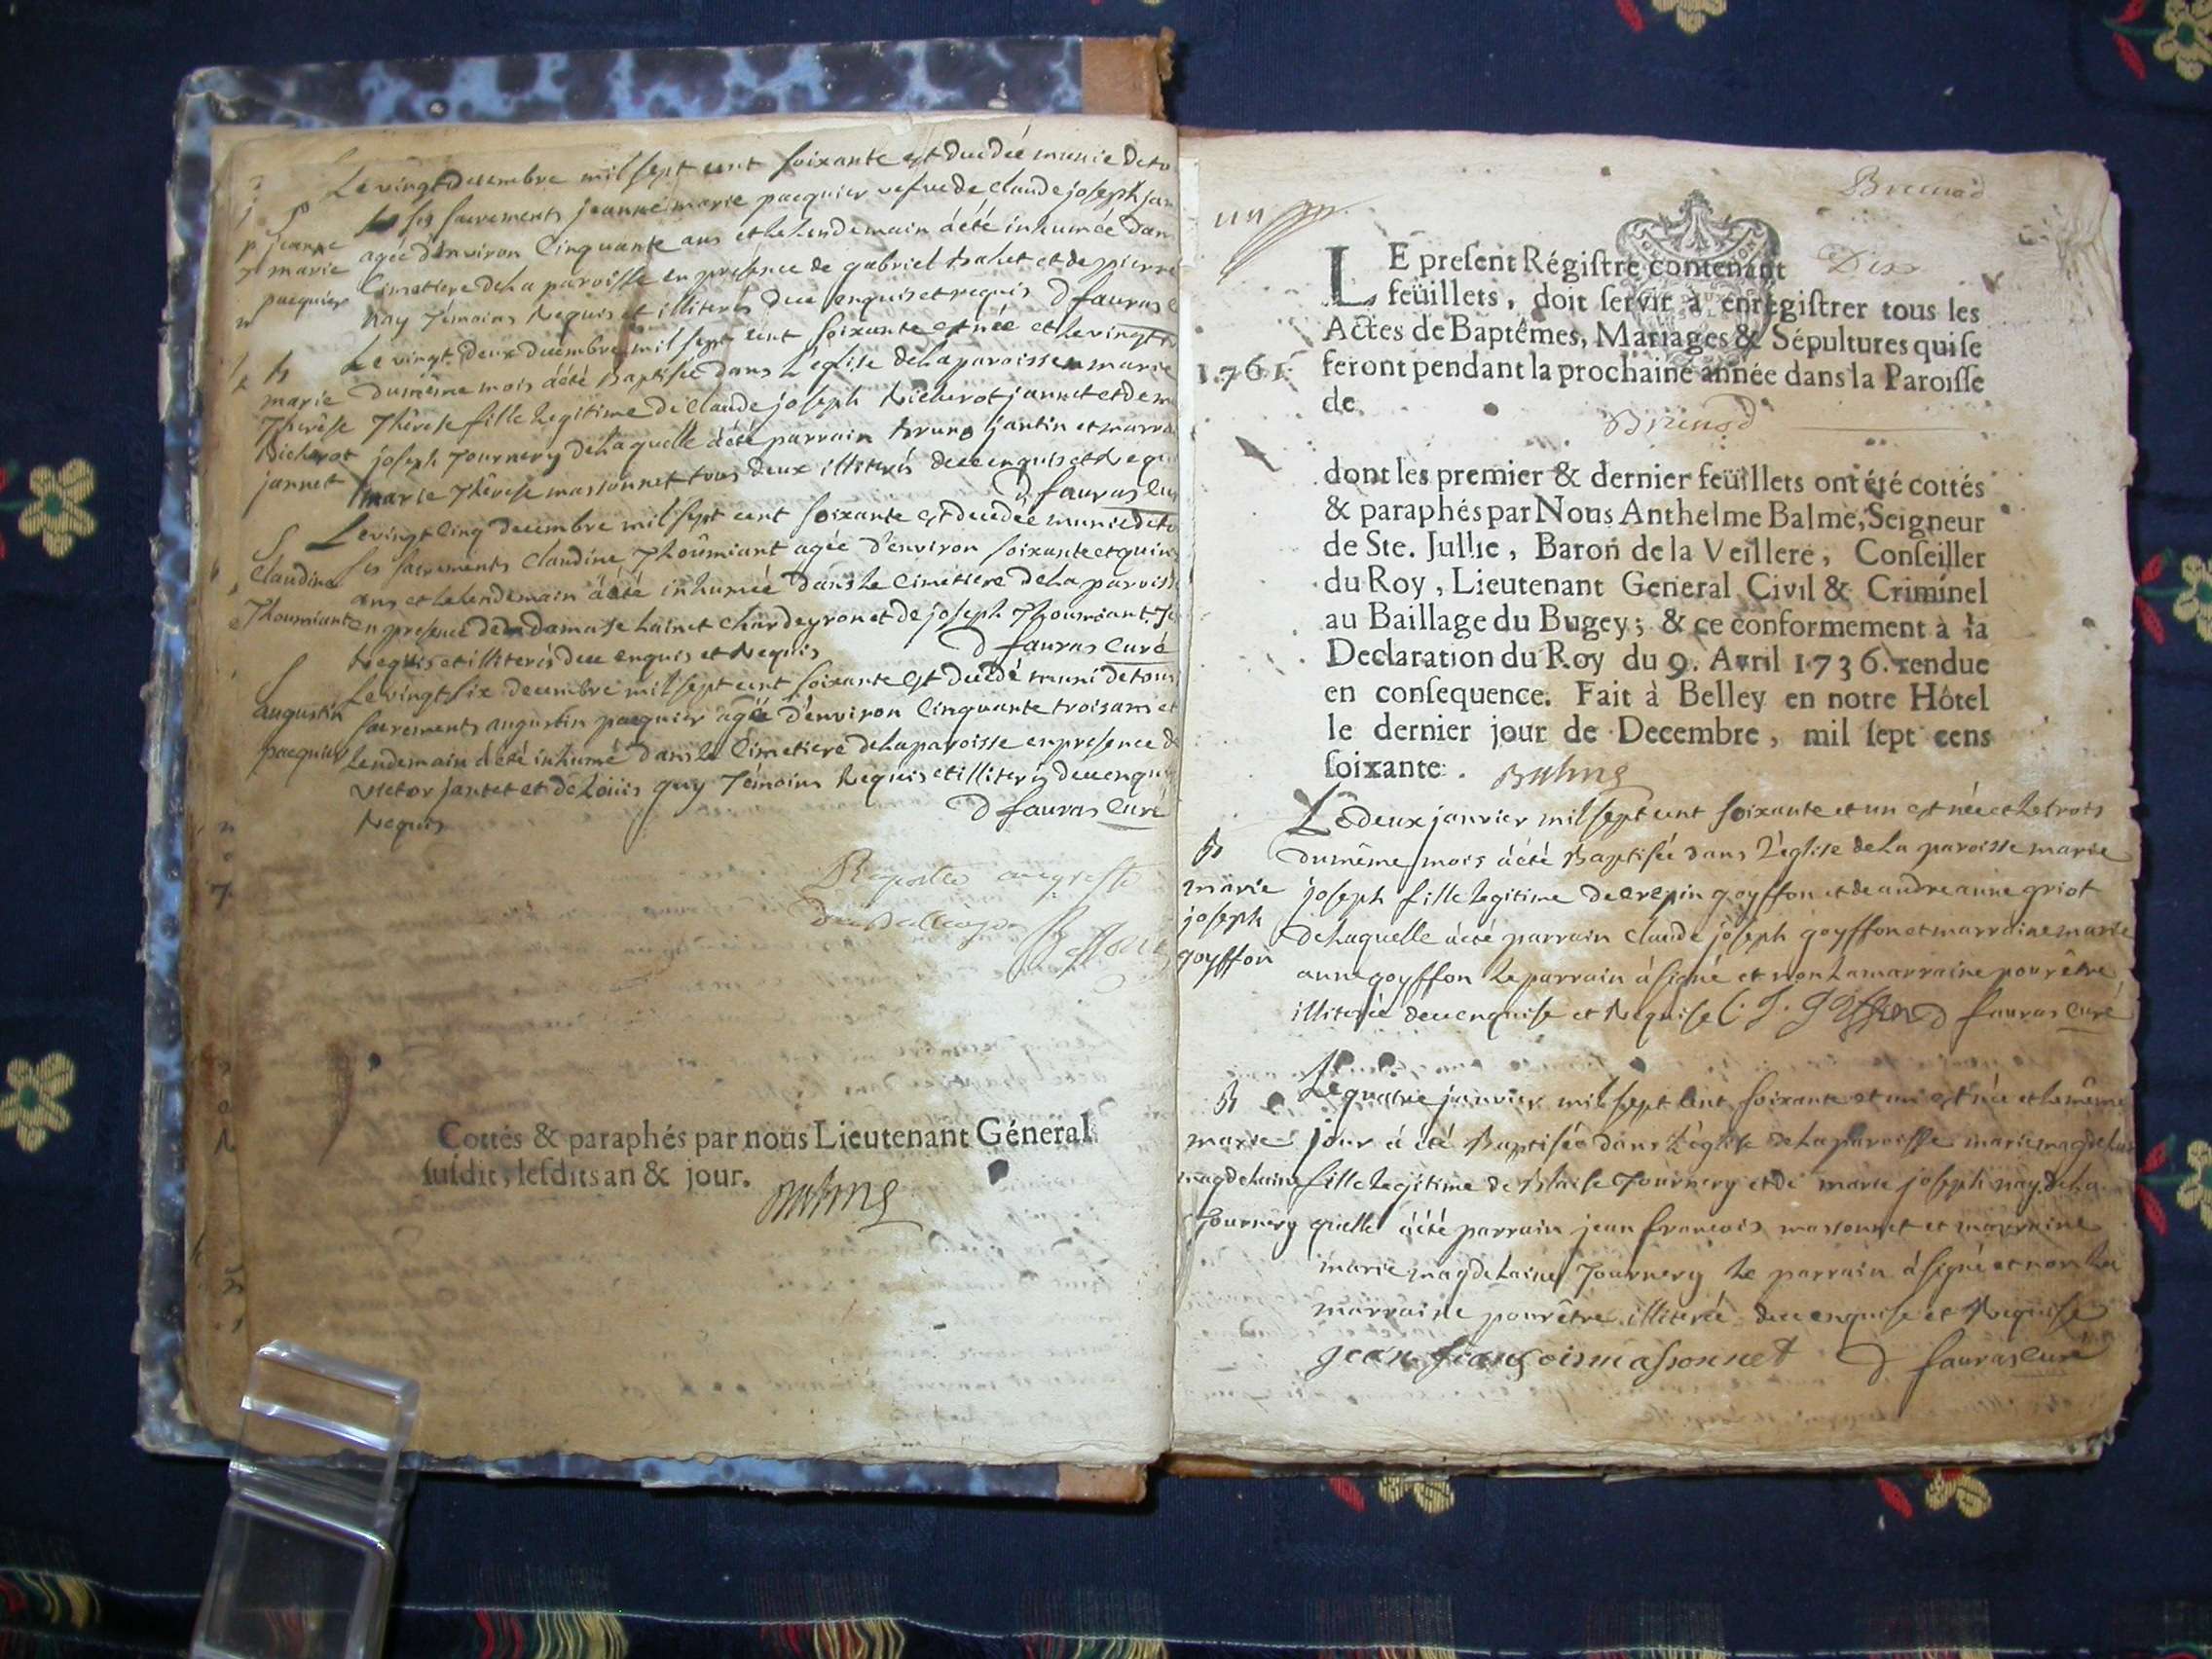 Le vingt decembre mil sept cent soixante est decedée munie de to
ses sacrements jeanne marie pacquier vefve de claude joseph jan
agée d'environ cinquante ans et le lendemain a été inhumée dans
cimetiere de la paroisse en presence de gabriel balet et de pierre
nay témoins requis et illiterés deue enquis et requis D fauras c
S
jeanne
marie
pacquier
Le vingt deux decembre mil sept cent soixante est née et le vingt
du même mois a été Baptisée dans l'église de la paroisse marie
Thérèse fille legitime de claude joseph Richerot jannet et de m
joseph Tournery de laquelle a été parrain bruno jantin et marra
marie Thérèse massonnet tous deux illiterés deue enquis et requ
D fauras cu
B
marie
Thérèse
Richerot
jannet
Le vingt cinq decembre mil sept cent soixante est decedée munie de to
ses sacrements claudine Thoumiant agée d'environ soixante et quin
ans et le lendemain a été inhumée dans le cimetiere de la paroiss
en presence de damase hainet chardeyron et de joseph Thoumiant Te
requis et illiterés deue enquis et requis D fauras curé
S
claudine
Thoumiant
Le vingt six decembre mil sept cent soixante est decedé muni de tous
sacrements augustin pacquier agée d'environ cinquante trois ans et
lendemain a été inhumé dans le cimetiere de la paroisse en presence d
victor jantet et de loüis guy Témoins requis et illiterés deue enqui
requis D fauras curé
S
augustin
pacquier
Cottés & paraphés par nous Lieutenant Géneral
suſdit, leſdits an & jour.
Balme
Brenod
un
1761
LE preſent Régiſtre contenant Dix
feüillets, doit ſervir à enregiſtrer tous les
Actes de Baptêmes, Mariages & Sépultures qui ſe
feront pendant la prochaine année dans la Paroiſſe
de
Brenod
dont les premier & dernier feüillets ont été cottés
& paraphés par Nous Anthelme Balme, Seigneur
de Ste. Jullie, Baron de la Veillere, Conſeiller
du Roy, Lieutenant General Civil & Criminel
au Baillage du Bugey; & ce conformement à la
Declaration du Roy du 9. Avril 1736. rendue
en conſequence. Fait à Belley en notre Hôtel
le dernier jour de Decembre, mil ſept cens
ſoixante. Balme
Le deux janvier mil sept cent soixante et un est née et le trois
du même mois a été Baptisée dans l'église de la paroisse marie
joseph fille legitime de crepin goyffon et de andreanne griot
de laquelle a été parrain claude joseph goyffon et marraine marie
anne goyffon le parrain a signé et non la marraine pour être
illiterée deue enquise et requise C. J. Goiffon D fauras curé
B
marie
joseph
goyffon
Le quatre janvier mil sept cent soixante et un est née et le même
jour a été Baptisée dans l'église de la paroisse marie magdelaine
fille legitime de Blaise Tournery et de marie joseph nay de la
quelle a été parrain jean francois massonnet et marraine
marie magdelaine Tournery le parrain a signé et non la
marraine pour être illiterée deue enquise et requise
jean françois massonnet D fauras curé
B
marie
magdelaine
Tournery